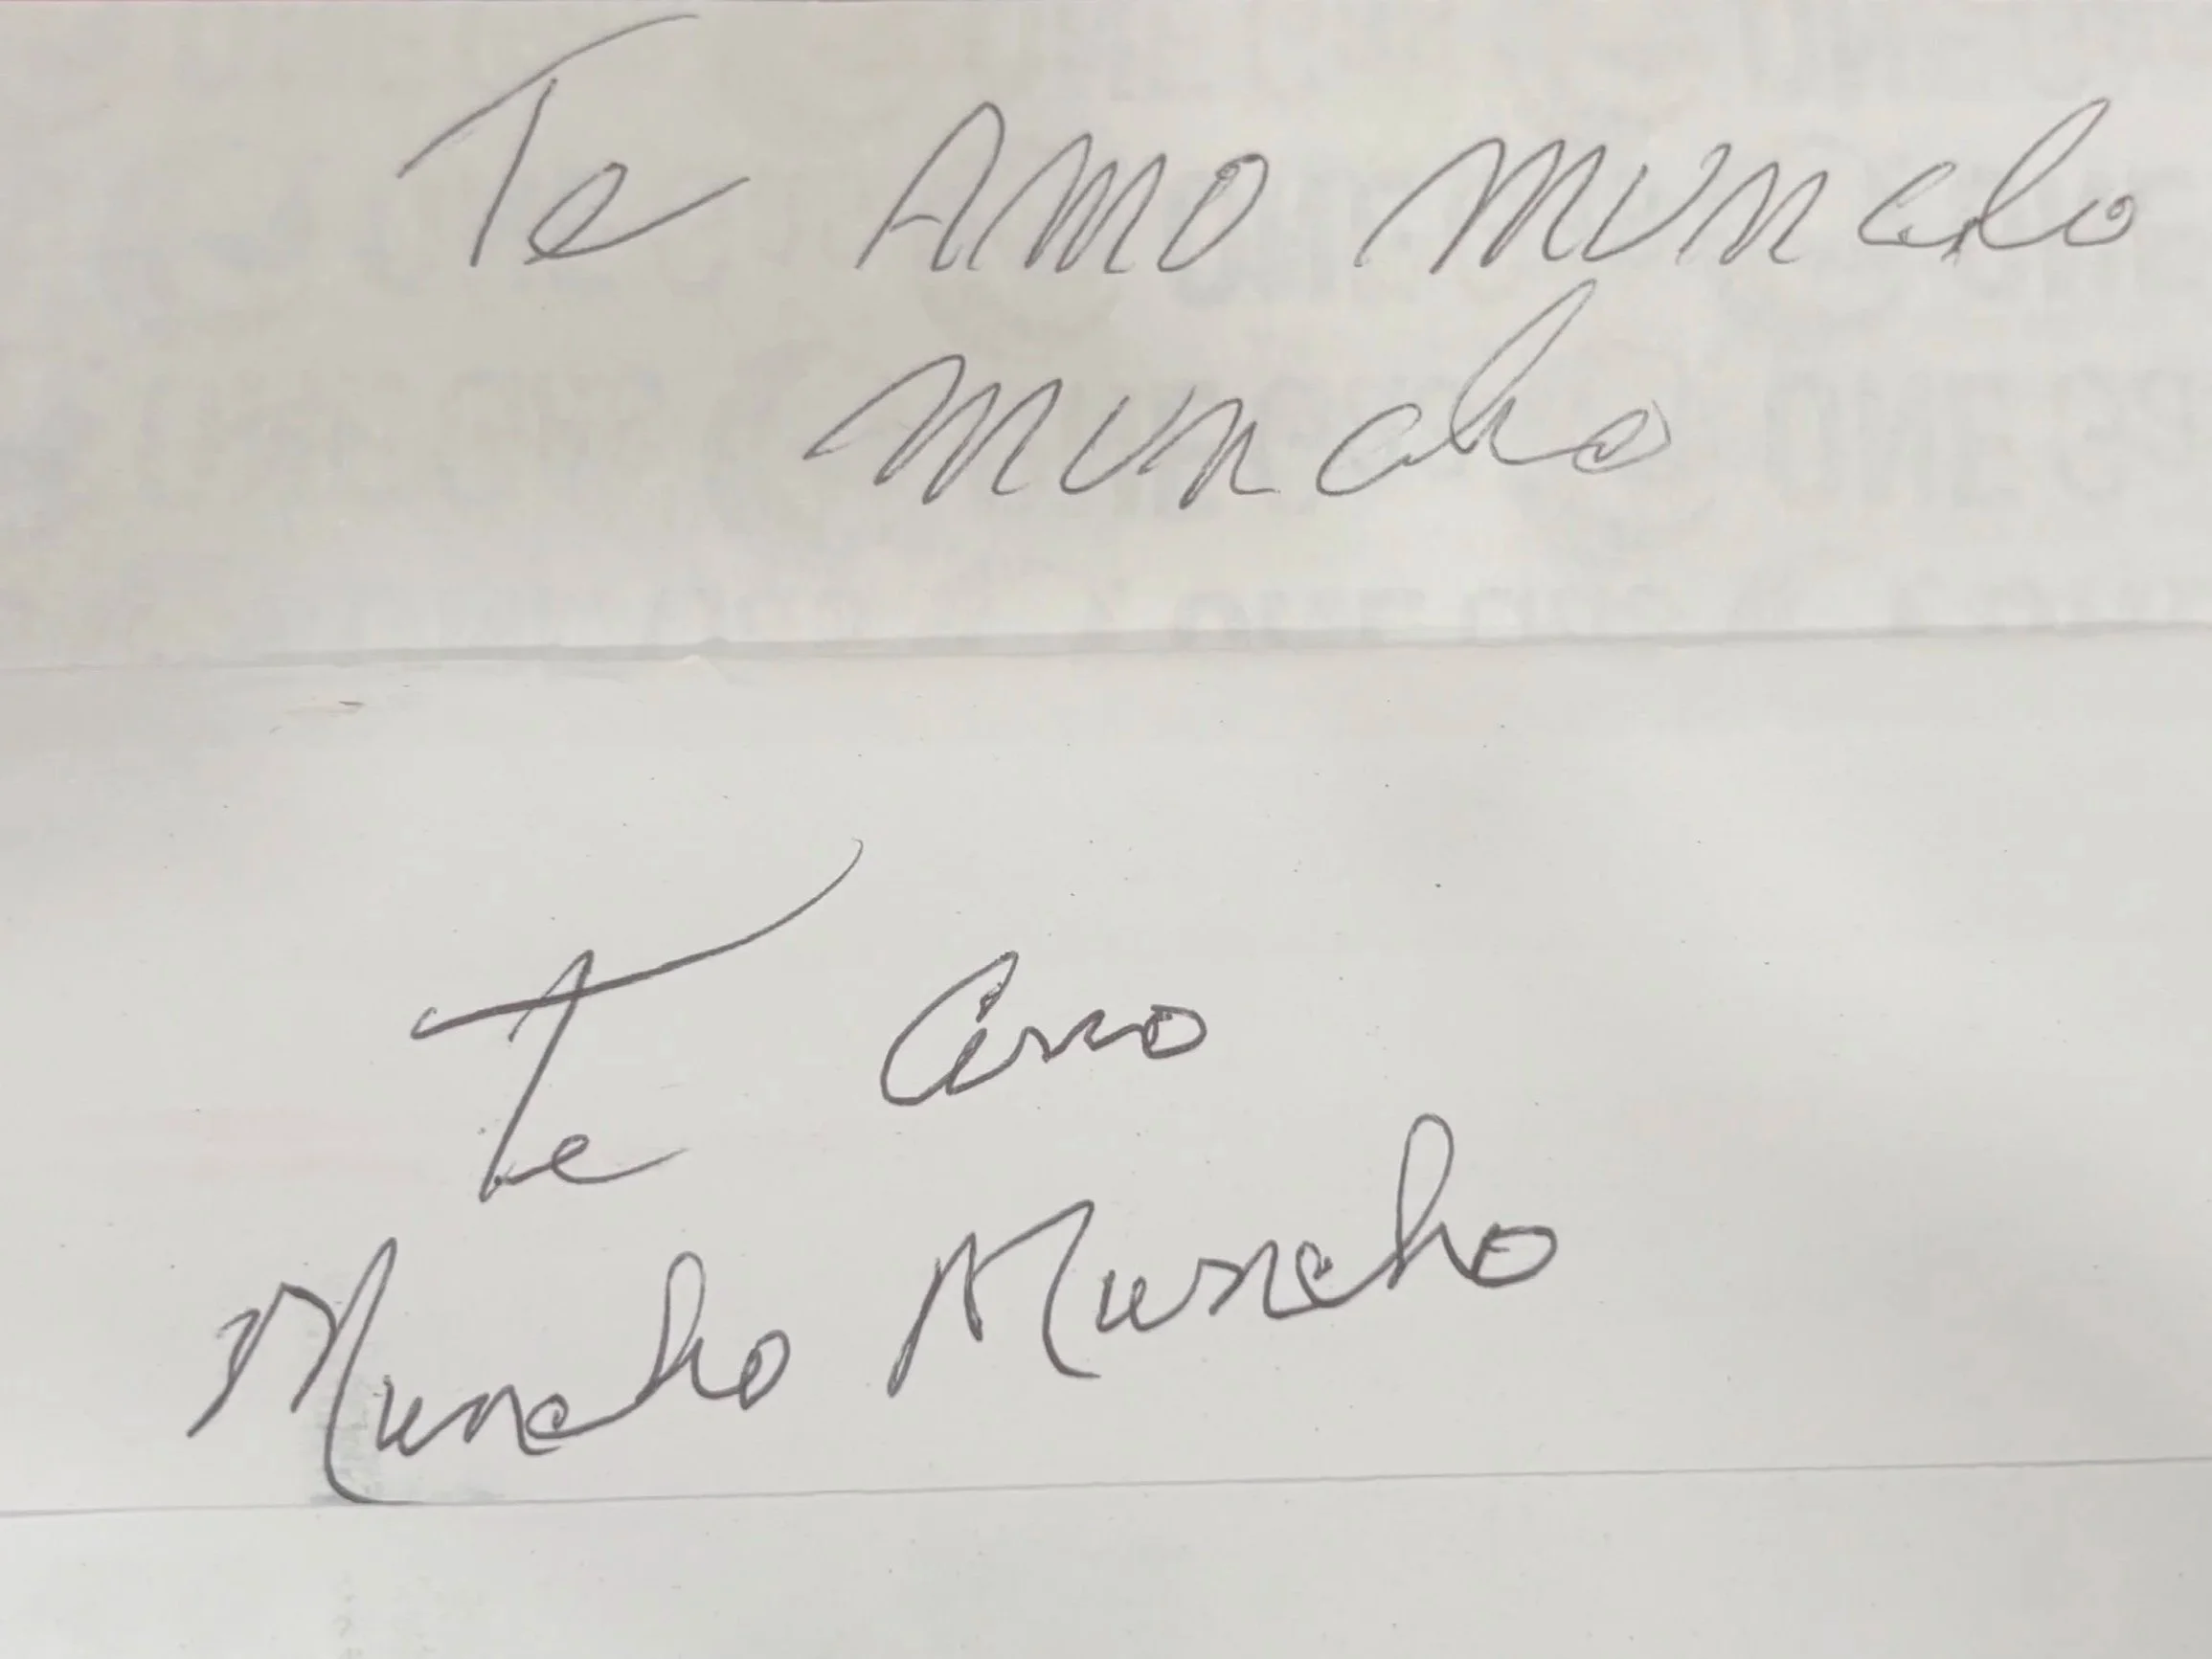 Te AMO MUNcho
MUNcho
Te Amo
Muncho Muncho